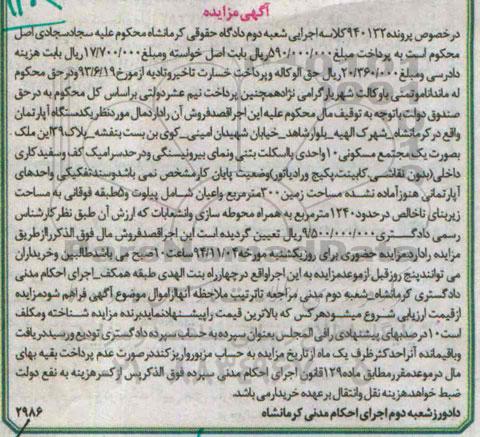 آگهی مزایده
درخصوص پرونده ۹۴۰۱۳۲کلاسه اجرایی شعبه دوم دادگاه حقوقی کرمانشاه محکوم علیه سجادسجادی اصل
محکوم است به پرداخت مبلغ۵۹۰/۰۰۰/۰۰۰ریال بابت اصل خواسته ومبلغ۱۷/۷۰۰/۰۰۰ریال بابت هزینه
دادرسی ومبلغ۲۰/۳۶۰/۰۰۰ریال حق الوکاله وپرداخت خسارت تاخیروتادیه ازمورخ۹۳/۶/۱۹ودرحق محکوم
له ماندانامومنی باوکالت شهریارگرامی نژادهمچنین پرداخت نیم عشردولتی براساس کل محکوم به درحق
صندوق دولت باتوجه به توقیف مال محکوم علیه این اجراقصدفروش آن رادارد.مال موردنظریکدستگاه آپارتمان
واقع درکرمانشاه_شهرک الهیه_بلوارشاهد_خیابان شهیدان امینی_کوی بن بست بنفشه_پلاک۳۹این ملک.
بصورت یک مجتمع مسکونی۱۰واحدی بااسکلت بتنی ونمای بیرونیسنگی ودرحدسرامیک کف وسفیدکاری
داخلی(بدون نقاشی_کابینت_پکیج ورادیاتور)وضعیت پایان کارمشخص نمی باشدوسندتفکیکی واحدهای
آپارتمانی هنوزآماده نشده مساحت زمین۳۰۰مترمربع واعیان شامل پیلوت و۵طبقه فوقانی به مساحت
زیربنای ناخالص درحدود۱۲۴۰مترمربع به همراه محوطه سازی وانشعابات که ارزش آن طبق نظرکارشناس
رسمی دادگستری۹/۵۰۰/۰۰۰/۰۰۰ریال تعیین گردیده است این اجراقصدفروش مال فوق الذکررااز طریق
مزایده رادارد.مزایده حضوری برای روزیکشنبه مورخه۹۴/۱۱/۰۴ساعت۱۰صبح می باشدطالبین وخریداران
می توانندپنج روزقبل ازموعدمزایده به این اجراواقع درچهارراه بنت الهدی طبقه همکف_اجرای احکام مدنی
دادگستری کرمانشاه_شعبه دوم مدنی مراجعه تاترتیب ملاحظه آنهاازاموال موضوع آگهی فراهم شودمزایده
ازقیمت ارزیابی شروع میشودهرکس که بالاترین قیمت راپیشنهادنمایدبرنده مزایده شناخته ومکلف
است۱۰درصدبهای پیشنهادی رافی المجلس بعنوان سپرده به حساب سپرده دادگستری تودیع ورسیددریافت
وباقیمانده آنراحداکثرظرف یک ماه ازتاریخ مزایده به حساب مزبورواریزکنددرصورت عدم پرداخت بقیه بهای
مال درموعدمقررمطابق ماده۱۲۹قانون اجرای احکام مدنی سپرده فوق الذکرپس ازکسرهزینه به نفع دولت
ضبط خواهدهزینه نقل وانتقال برعهده خریدارمی باشد.
دادورزشعبه دوم اجرای احکام مدنی کرمانشاه
۲۹۸۶